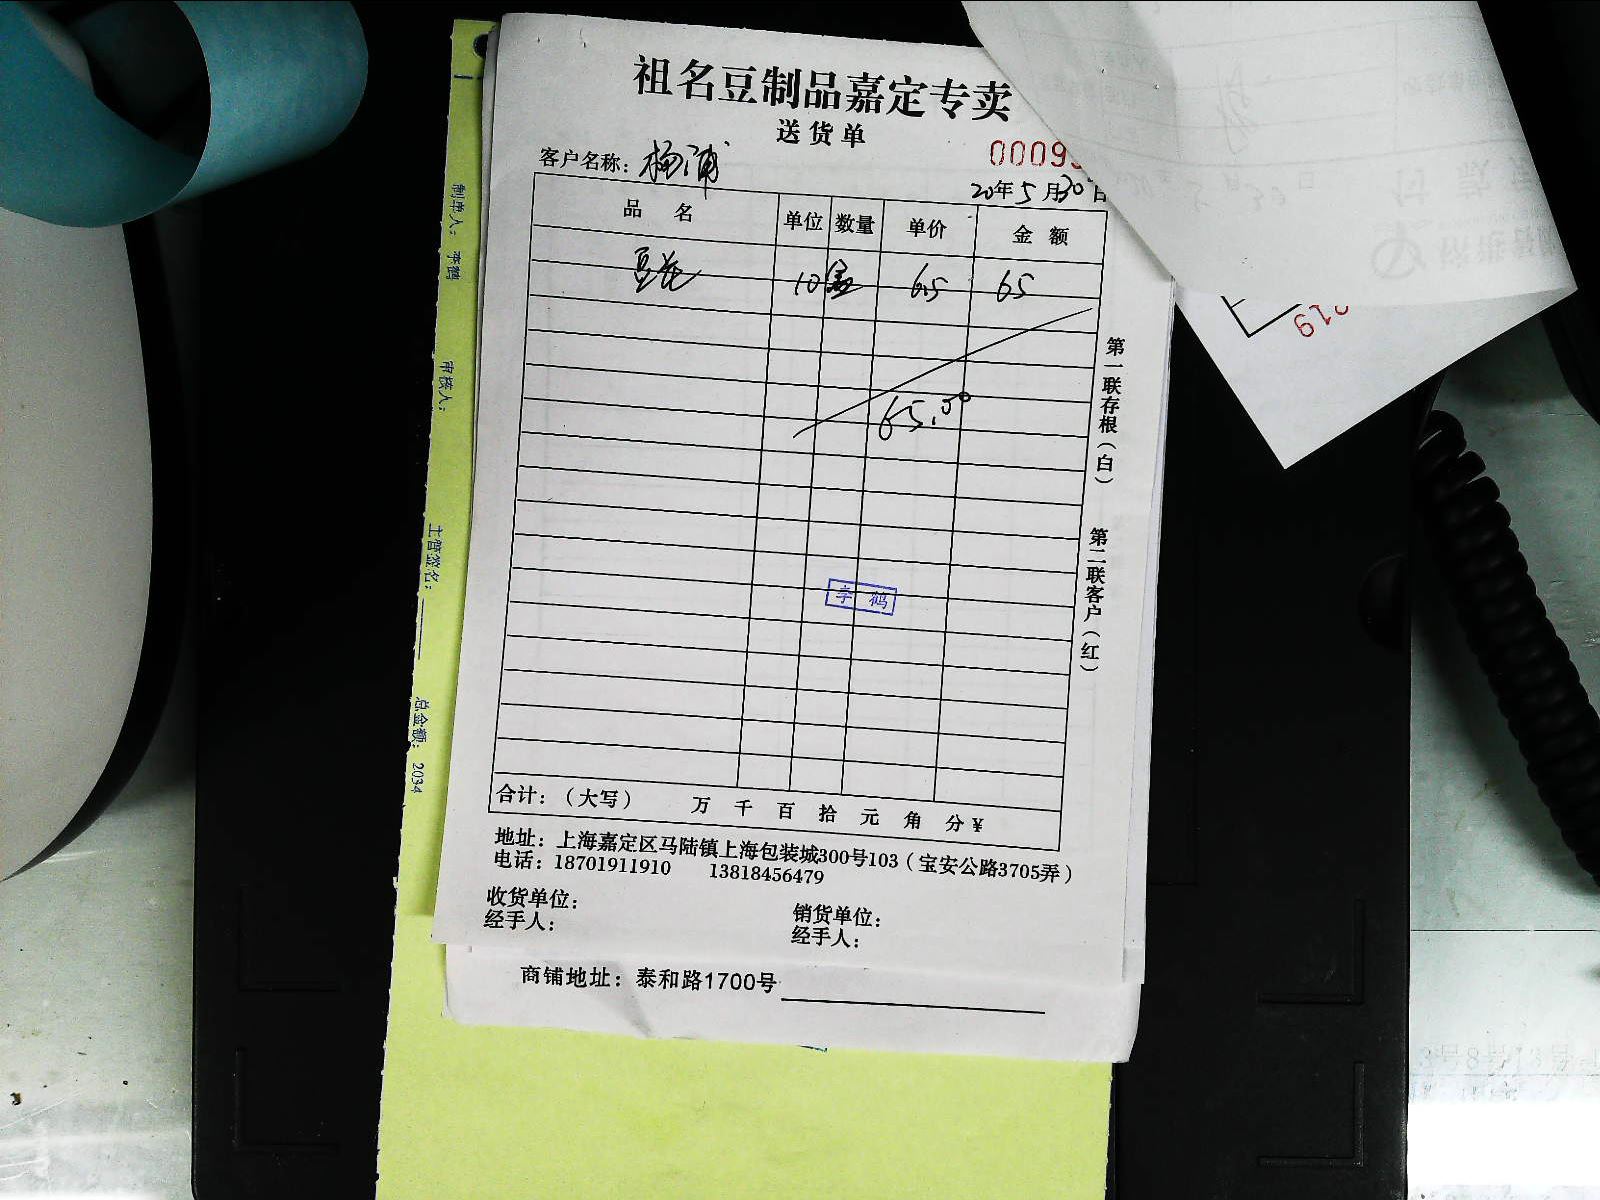 祖名豆制品嘉定专卖
送货单
客户名称：杨浦
0009
20年5月30日
品 名 单位 数量 单价 金 额
豆花 10 盒 6.5 65
65.00
李 鹤
合计：（大写） 万 千 百 拾 元 角 分￥
地址：上海嘉定区马陆镇上海包装城300号103（宝安公路3705弄）
电话：18701911910 13818456479
收货单位：
经手人：
销货单位：
经手人：
第一联存根（白）
第二联客户（红）
商铺地址：泰和路1700号
制单人：李鹤
审核人：
主管签名：
总金额：2034
219